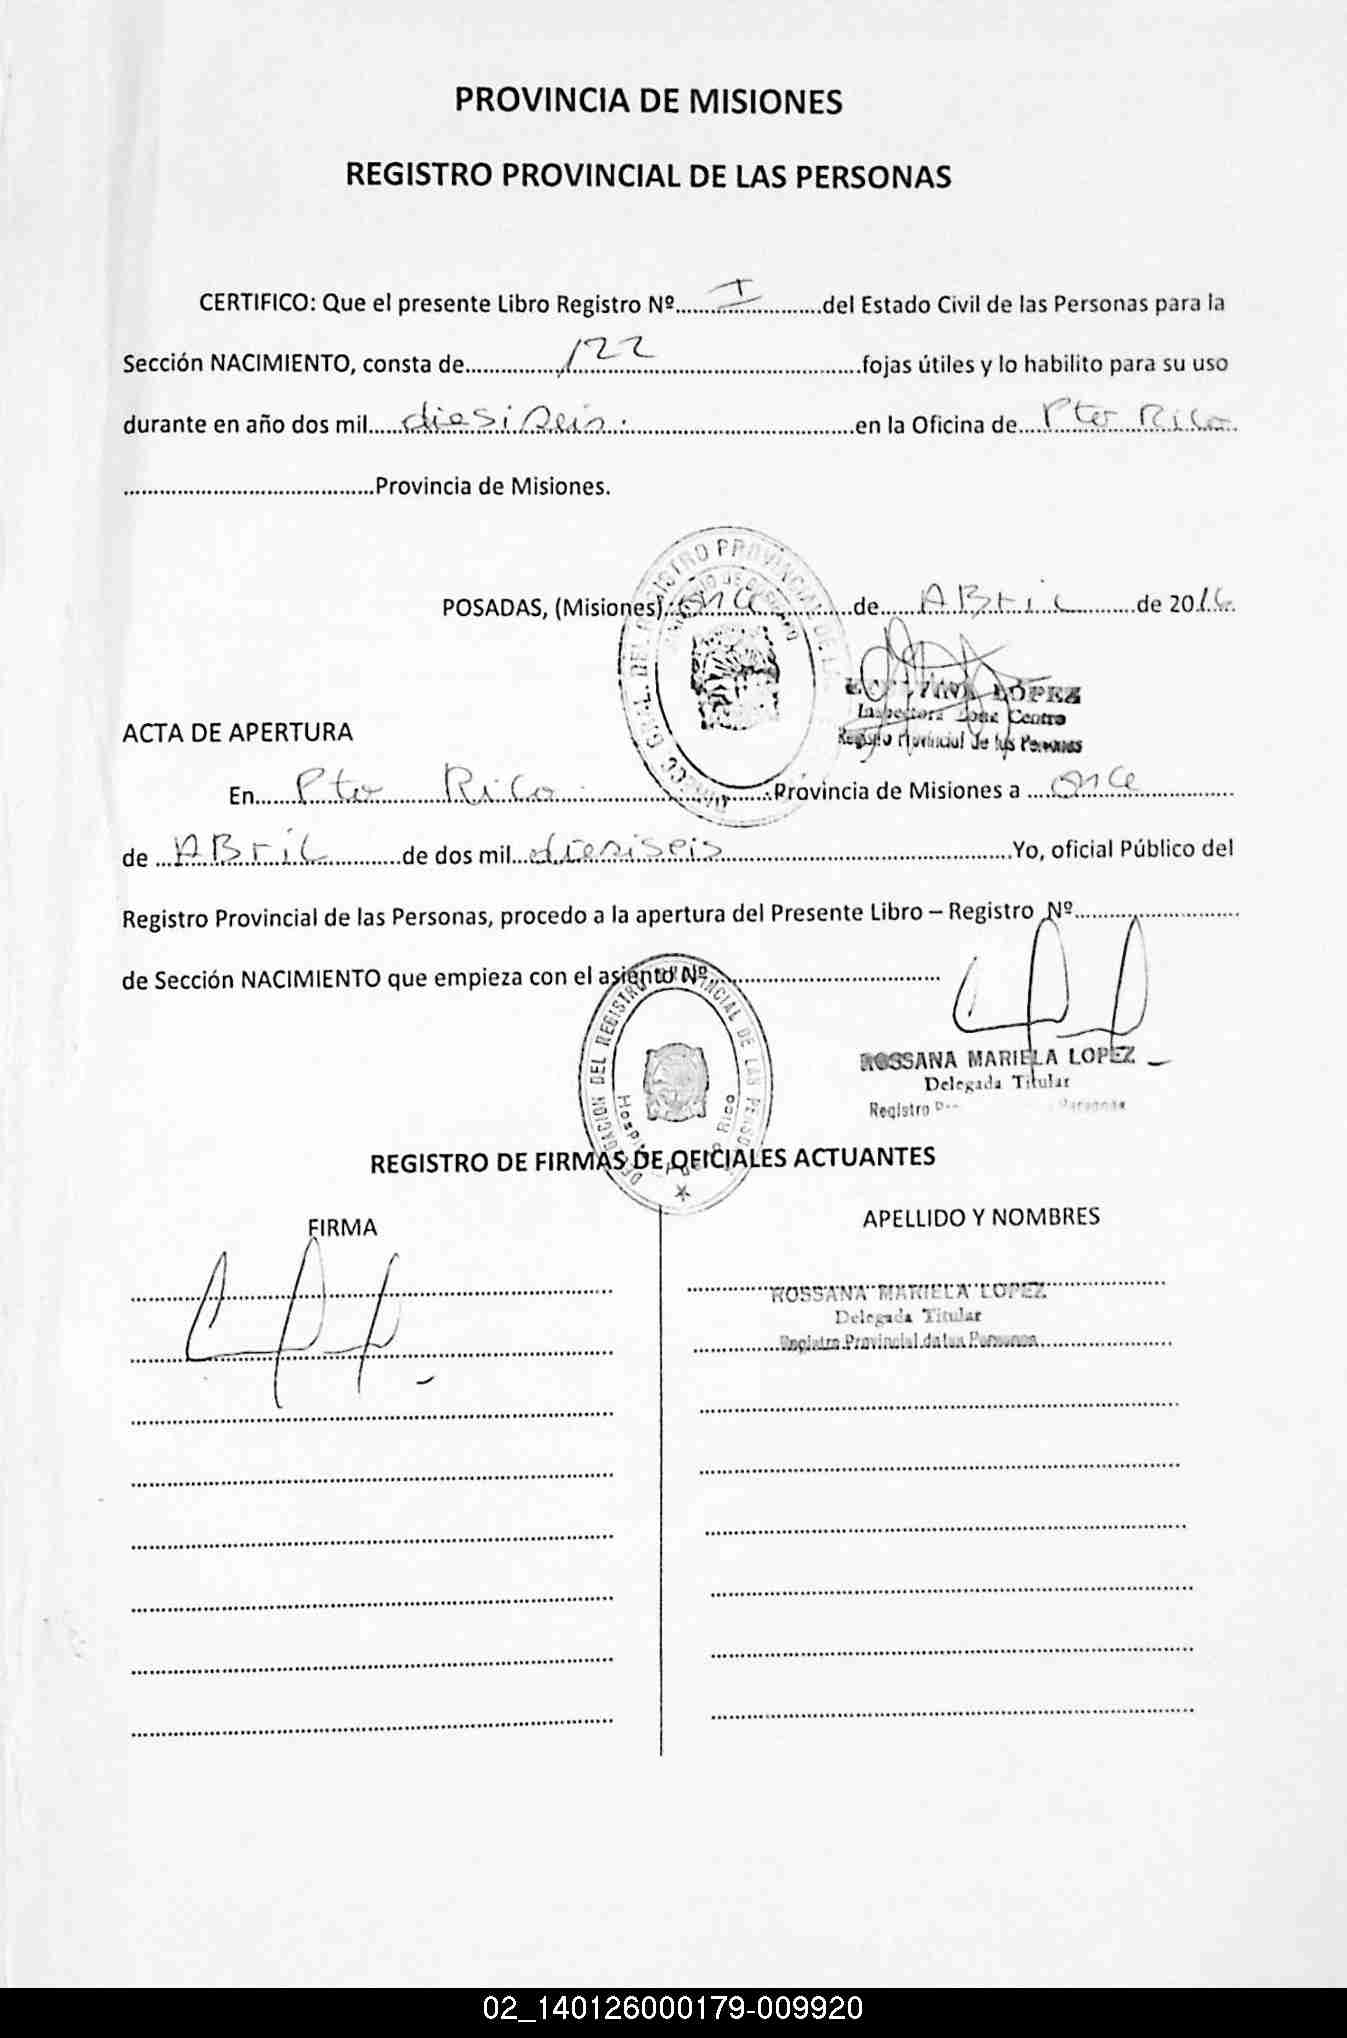 PROVINCIA DE MISIONES
REGISTRO PROVINCIAL DE LAS PERSONAS
CERTIFICO: Que el presente Libro Registro Nº......I......del Estado Civil de las Personas para la
Sección NACIMIENTO, consta de......122......fojas útiles y lo habilito para su uso
durante en año dos mil......diesiseis......en la Oficina de......Pto Rico......
......Provincia de Misiones.
POSADAS, (Misiones)...once......de......ABril......de 2016.
LOPEZ
Inspectora Zona Centro
Registro Provincial de las Personas
ACTA DE APERTURA
En......Pto Rico......Provincia de Misiones a ......once......
de ......ABril......de dos mil...diesiseis......Yo, oficial Público del
Registro Provincial de las Personas, procedo a la apertura del Presente Libro – Registro Nº......
de Sección NACIMIENTO que empieza con el asiento Nº......
DELEGACION DEL REGISTRO PROVINCIAL DE LAS PERSONAS
Rico
ROSSANA MARIELA LOPEZ
Delegada Titular
Registro Personas
REGISTRO DE FIRMAS DE OFICIALES ACTUANTES
FIRMA
APELLIDO Y NOMBRES
ROSSANA MARIELA LOPEZ
Delegada Titular
Registro Provincial de las Personas
02_140126000179-009920